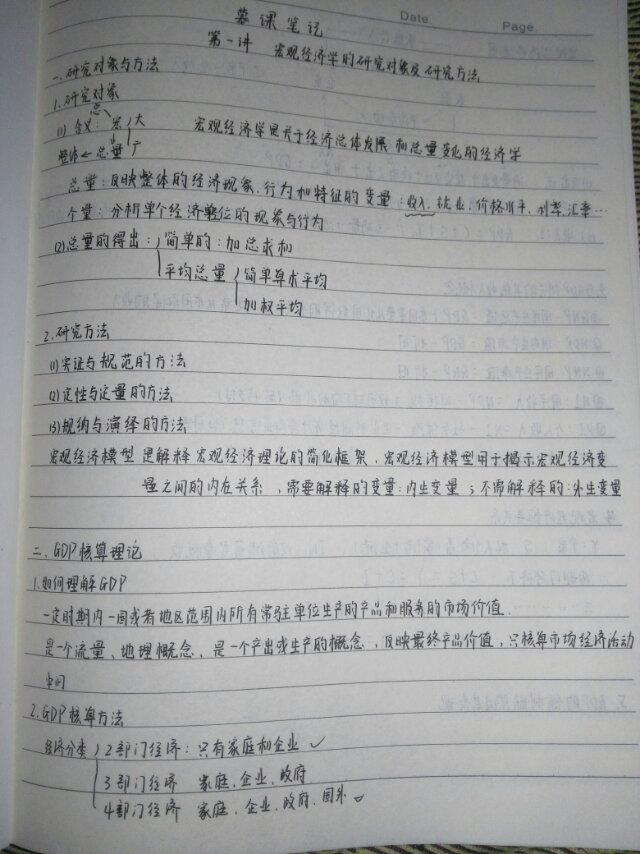 慕课笔记
Date.
Page.
第一讲 宏观经济学的研究对象及研究方法
一.研究对象与方法
1.研究对象
总
(1) 含义: 宏 大 宏观经济学是关于经济总体发展和总量变化的经济学
整体←总量 广
总量:反映整体的经济现象.行为和特征的变量:收入.就业.价格水平.利率.汇率…
个量:分析单个经济单位的现象与行为
(2)总量的得出: 简单的:加总求和
平均总量 简单算术平均
加权平均
2.研究方法
(1)实证与规范的方法
(2)定性与定量的方法
(3)规纳与演绎的方法
宏观经济模型是解释宏观经济理论的简化框架.宏观经济模型用于揭示宏观经济变
量之间的内在关系,需要解释的变量:内生变量;不需解释的:外生变量
二、GDP核算理论
1.如何理解GDP
一定时期内一国或者地区范围内所有常驻单位生产的产品和服务的市场价值.
是一个流量、地理概念、是一个产出或生产的概念,反映最终产品价值,只核算市场经济活动
中间
2.GDP核算方法
经济分类 2部门经济:只有家庭和企业✓
3部门经济 家庭、企业、政府
4部门经济 家庭、企业、政府、国外✓